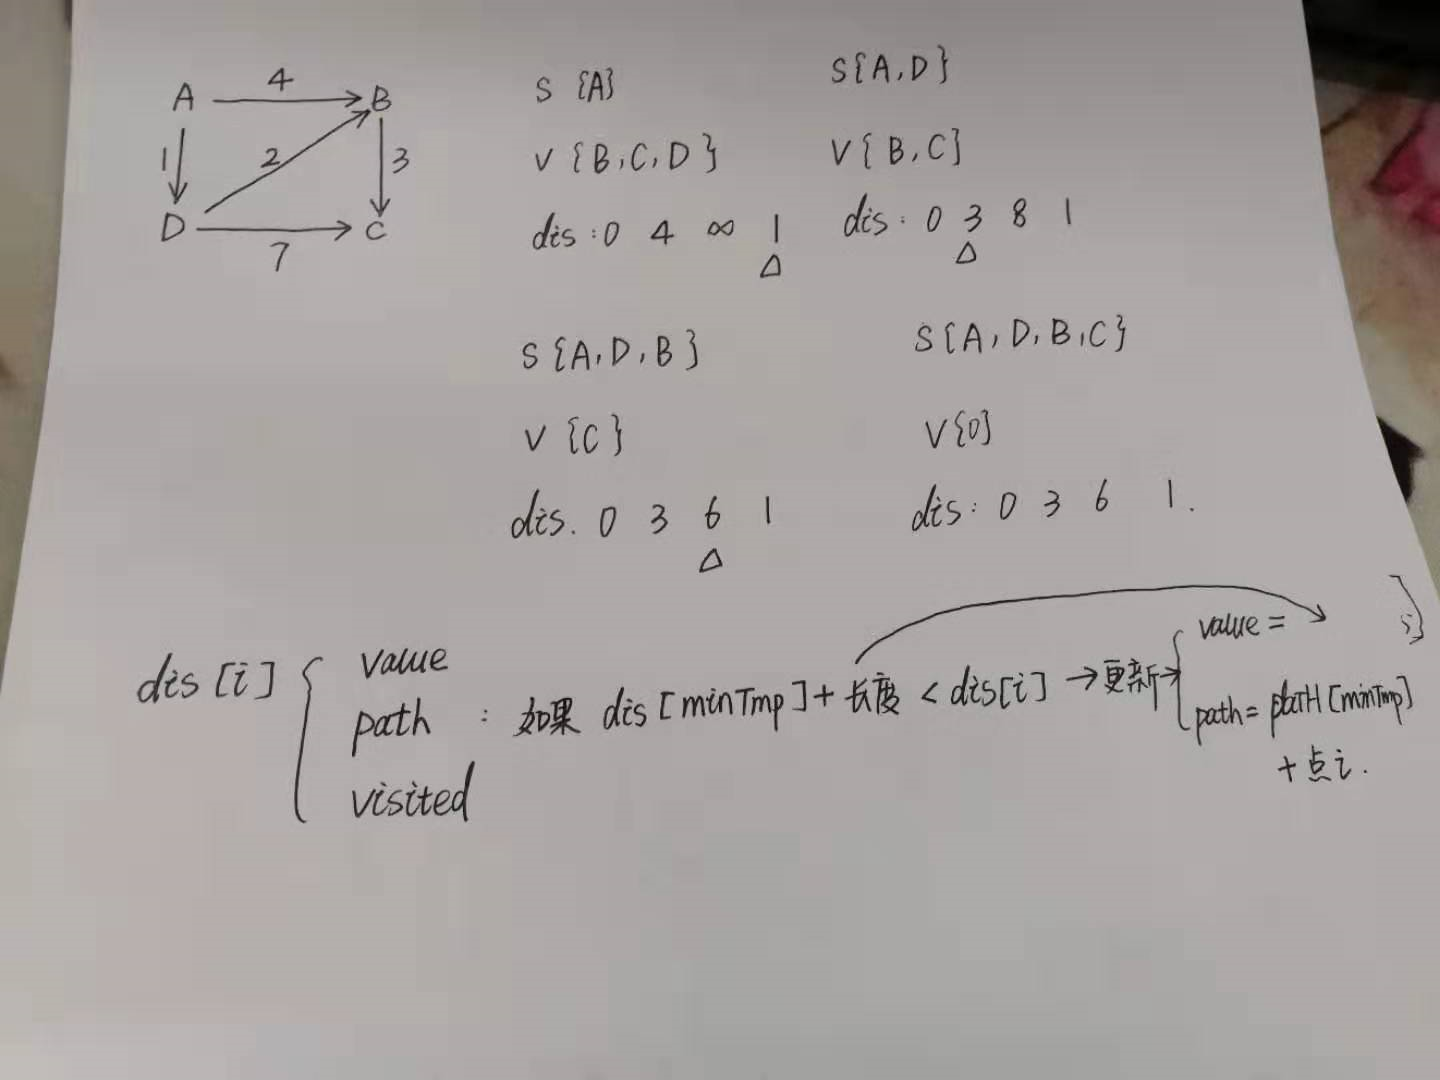 A 4 B
1 2 3
D 7 C
S {A}
V {B,C,D}
dis: 0 4 ∞ 1
Δ
S{A,D}
V{B,C}
dis: 0 3 8 1
Δ
S{A,D,B}
V {C}
dis. 0 3 6 1
Δ
S{A,D,B,C}
V{0}
dis: 0 3 6 1.
dis[i] { value
path : 如果 dis[minTmp]+长度 < dis[i] → 更新 → { value =
path = patH[minTmp]
+点i.
visited